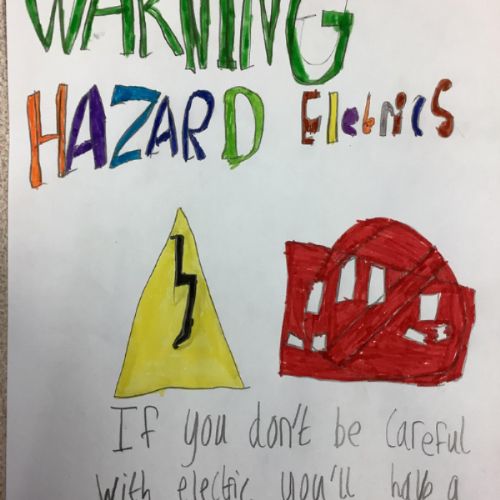 WARNING
HAZARD Elebrics
If you don't be careful
with electric you'll have a